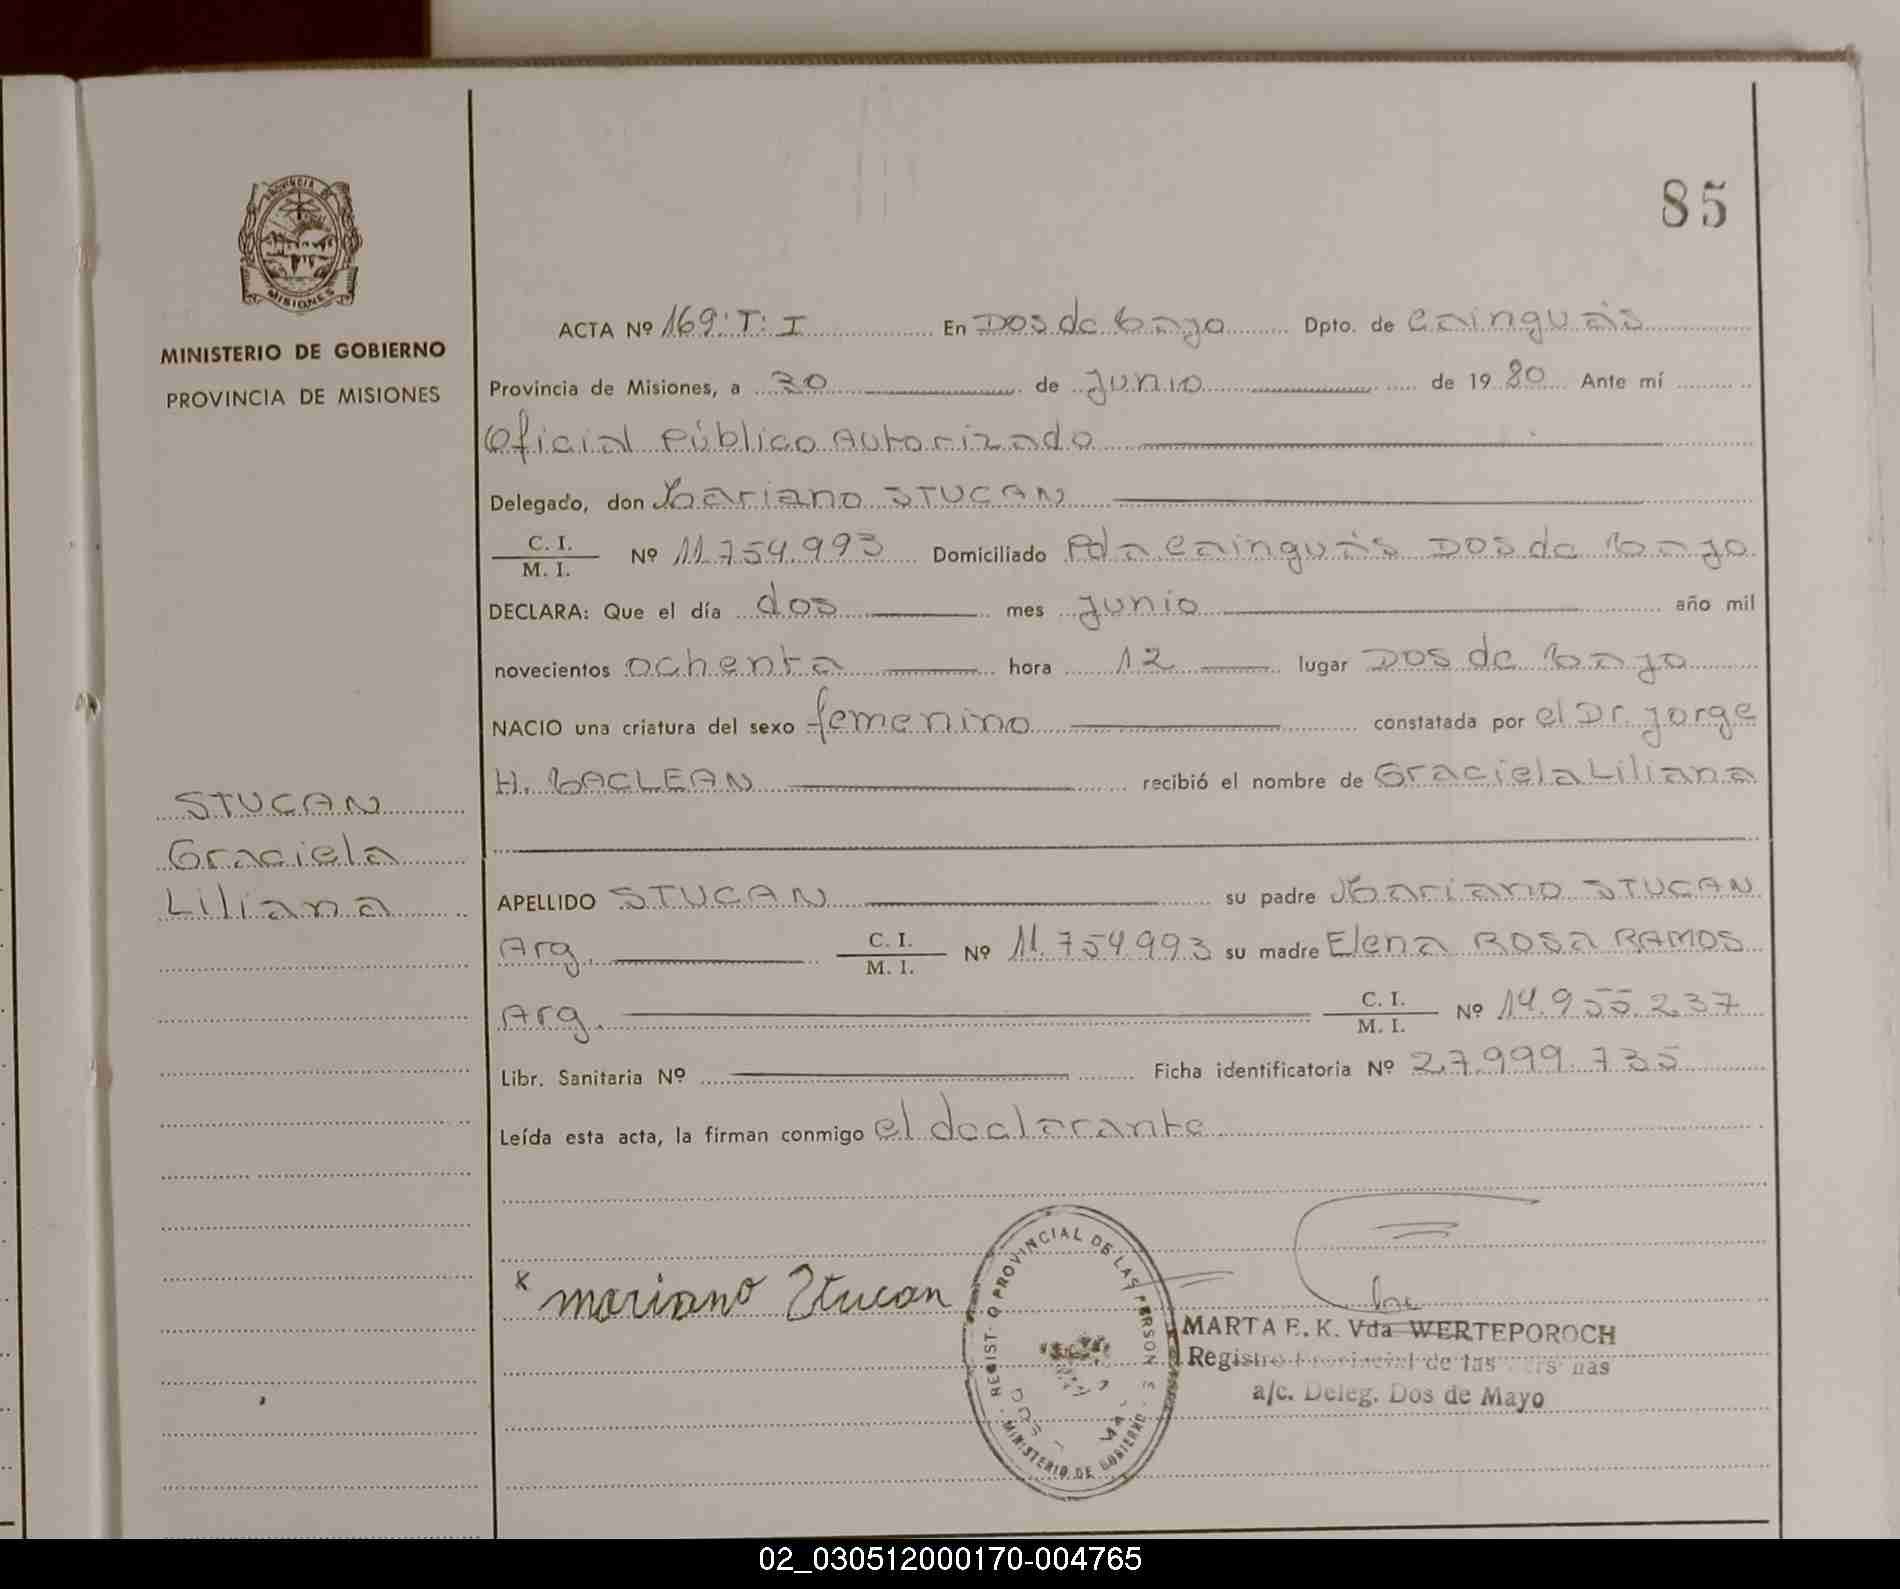 85
PROVINCIA DE
MISIONES
MINISTERIO DE GOBIERNO
PROVINCIA DE MISIONES
STUCAN
Graciela
Liliana
ACTA Nº 169:T:I En Dos de Mayo Dpto. de Cainguás
Provincia de Misiones, a 30 de Junio de 19 80 Ante mí
Oficial Público Autorizado
Delegado, don Mariano STUCAN
C. I. / M. I. Nº 11.754.993 Domiciliado Pda Cainguás Dos de Mayo
DECLARA: Que el día dos mes Junio año mil
novecientos ochenta hora 12 lugar Dos de Mayo
NACIO una criatura del sexo femenino constatada por el Dr. Jorge
H. MACLEAN recibió el nombre de Graciela Liliana
APELLIDO STUCAN su padre Mariano STUCAN
Arg. C. I. / M. I. Nº 11.754.993 su madre Elena ROSA RAMOS
Arg. C. I. / M. I. Nº 14.955.237
Libr. Sanitaria Nº Ficha identificatoria Nº 27.999.735
Leída esta acta, la firman conmigo el declarante
x mariano Stucan
REGIST O PROVINCIAL DE LAS PERSON
MINISTERIO DE GOBIERNO
MARTA E. K. Vda WERTEPOROCH
Registro Provincial de las Personas
a/c. Deleg. Dos de Mayo
02_030512000170-004765